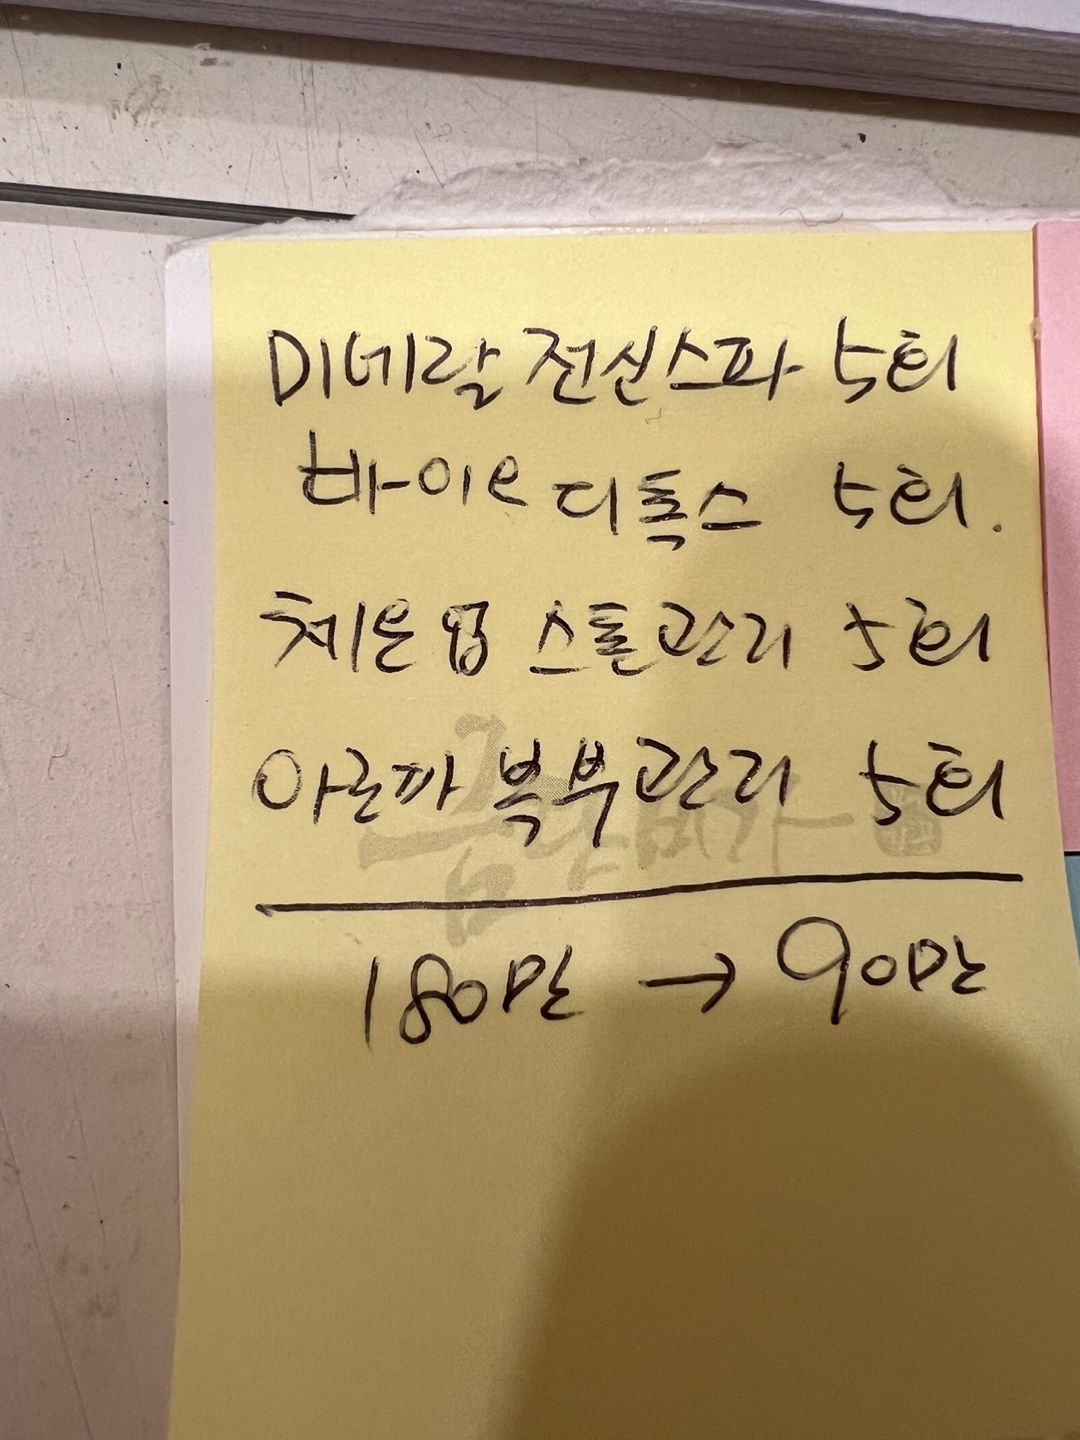 미네랄 전신스파 5회
바이오 디톡스 5회.
체온업 스톤관리 5회
아로마 복부관리 5회
180만 → 90만